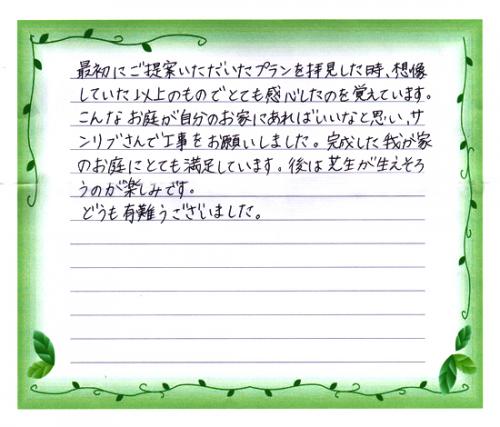 最初にご提案いただいたプランを拝見した時、想像
していた以上のものでとても感心したのを覚えています。
こんなお庭が自分のお家にあればいいなと思い、サ
ンリブさんで工事をお願いしました。完成した我が家
のお庭にとても満足しています。後は芝生が生えそろ
うのが楽しみです。
どうも有難うございました。